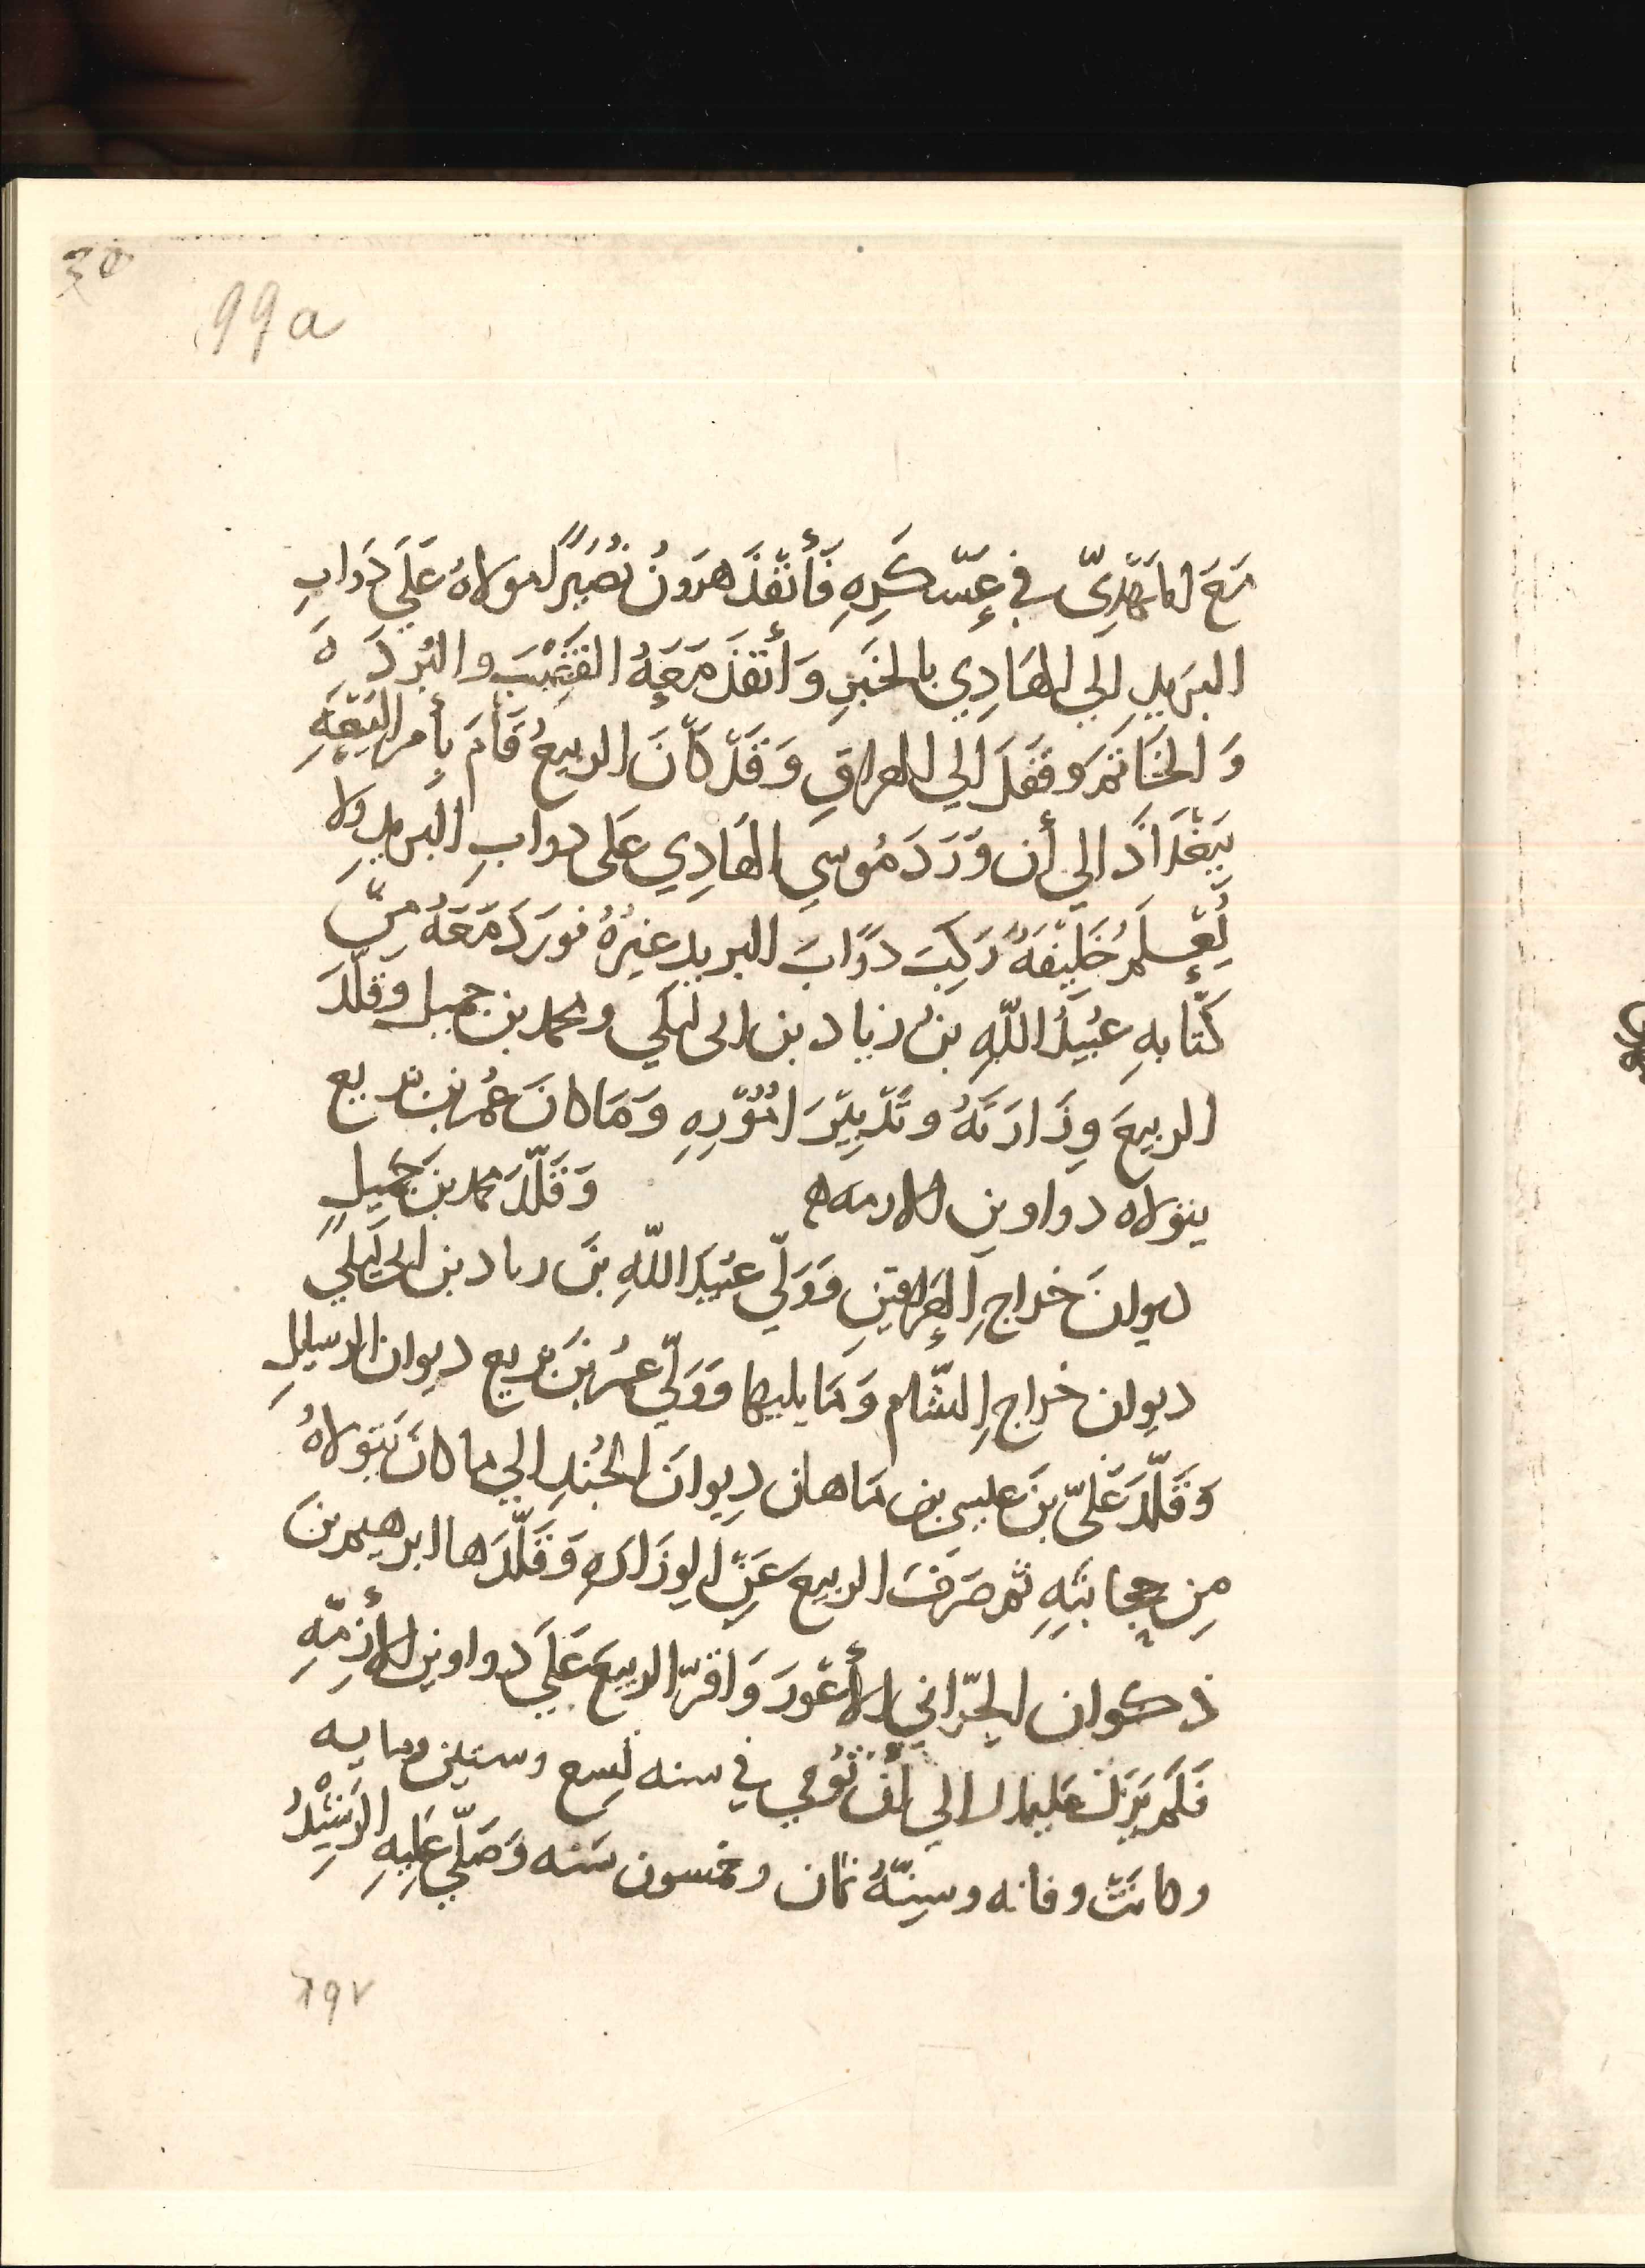 99a
مَعَ المَهْدِيّ في عَسْكَرِهِ فَأَنْفَذَ هرَونُ نُصَيرًا مَولاهُ عَلَي دَوابِ
البَريدِ اِلي الهَادِي بالخَبَرِ وَأَنفَذَ مَعَهُ القَضِيْبَ والبُردَ هَ
وَالخَاتَم وقَفَلَ اِلي العراقِ وَقَدْ كاَنَ الربيعُ قَامَ بِأمر البَيْعَهِ
بِبَغْدَادَ الي أن وَرَدَ مُوسي الهَادِي عَلى دوابِ البريدِ ولا
يُعْلَمُ خَلِيْفَهٌ رَكِبَ دَوَابَ البريد غيرُهُ فورَدَ مَعَهُ مِنْ
كُتّابهِ عُبَيدُ اللهِ بنُ زياد بن ابى لَيلَي ومحمد بن جميل وقَلّدَ
الربيعَ وِزَارَتَهُ وتَدْبِيْرَ امُوْرِهِ وَمَا كانَ عُمرُ بن بَزيع
يتولاه دواوين الازمه وَقَلّدَ محمد بنَ جَميلٍ
ديوانَ خراجِ العِراقَينِ وَوَلّي عبَيدَ اللهِ بنَ زياد بن ابى لَيلَي
ديوان خراجِ الشّام وَمَا يليها وَوَلّي عمرَ بنَ بَزيع ديوان الرسايلِ
وَقَلّدَ عَليّ بنَ عيسي بن مَاهان دِيوانَ الجُندِ الي ما كانَ يَتَولاهُ
مِن حِجابَتِهِ ثم صَرَفَ الربيع عَنِ الوِزَارَهِ وَقَلّدَها ابرهيمَ بنَ
ذكوان الحَرّاني الأعْوَرَ وَاقَرّ الربيعَ عَلَي دواوين الأزِمّهِ
فَلَم يَزَل عَليها الي أن تُوُفي في سنه تِسع وستين ومايه
وكانَتْ وفاته وسِنّهُ ثمان وخمسون سَنه وَصَلّي عَلَيهِ الرَشِيْدُ
١٩٧